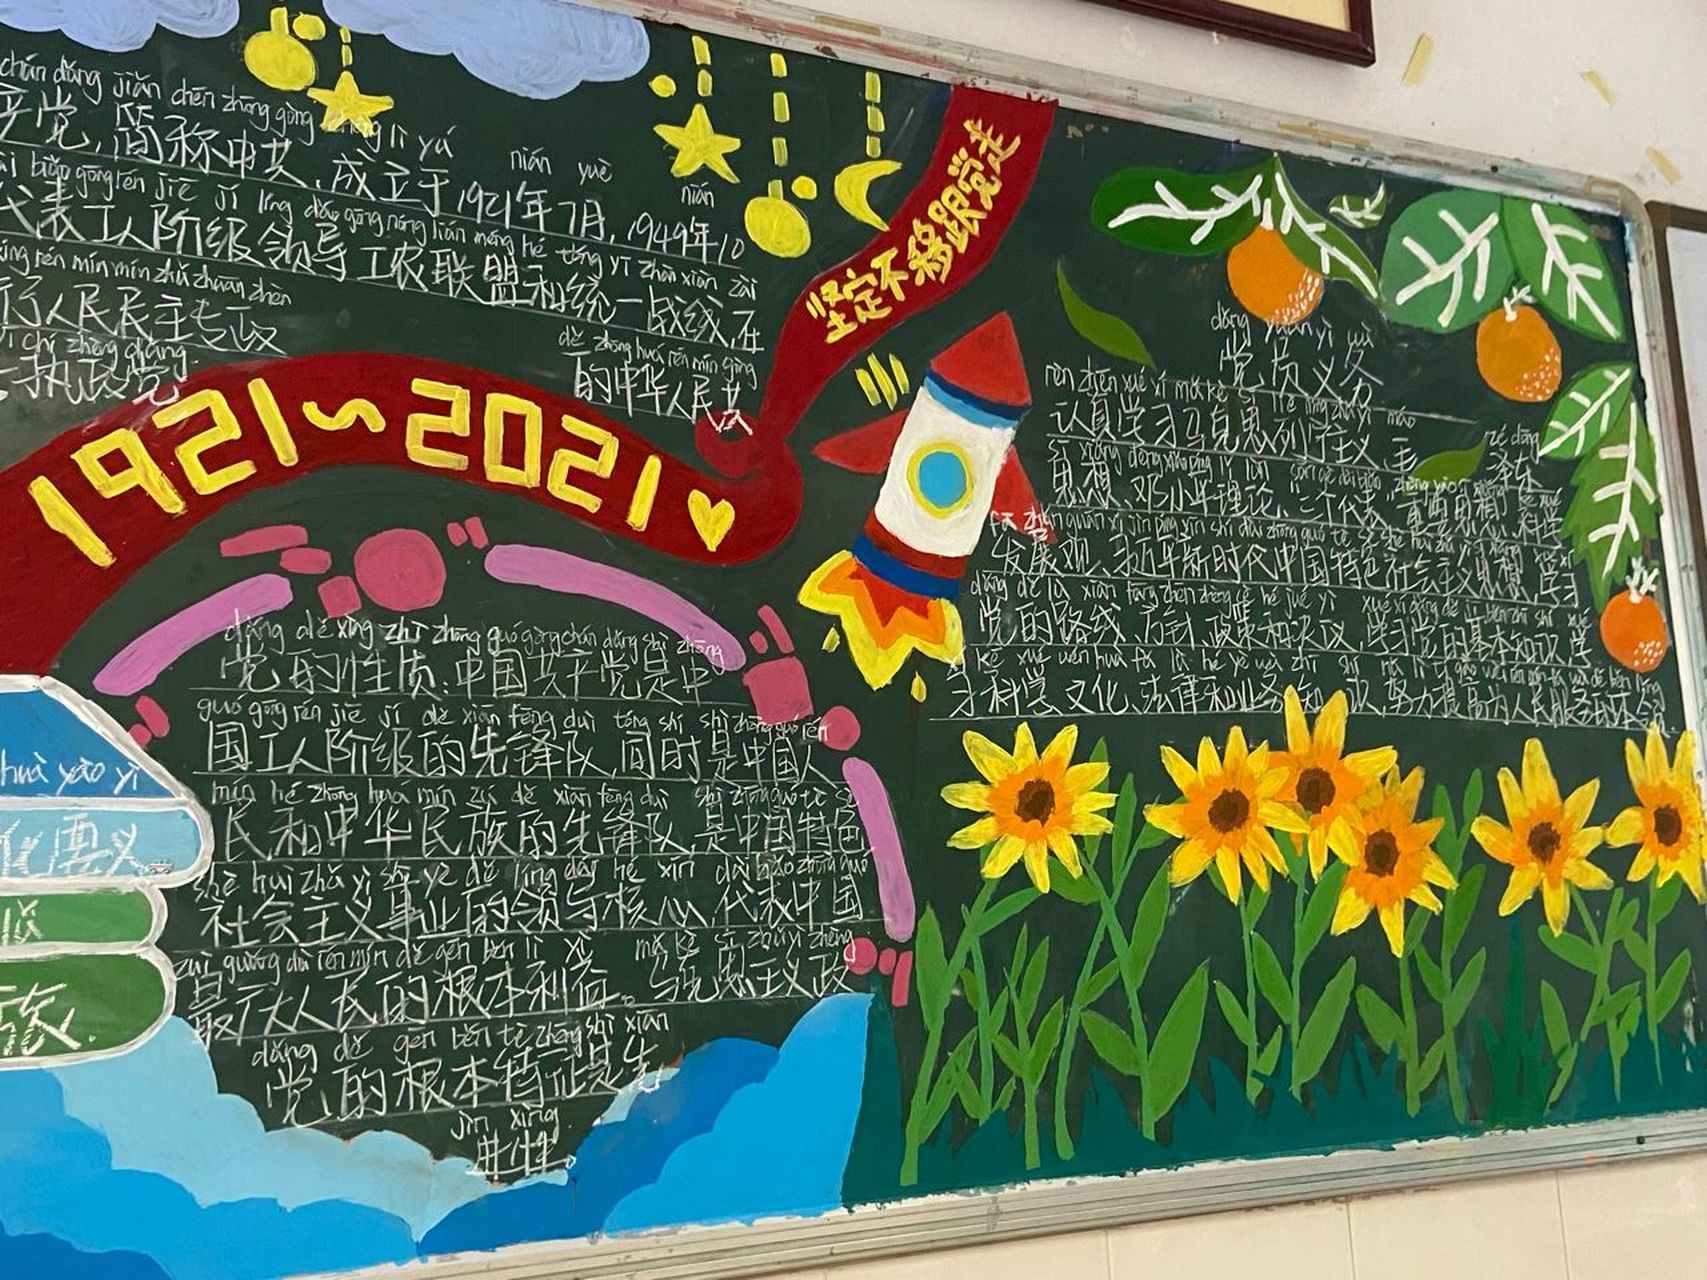 chǎn dǎng jiǎn chēn zhōng gòng lì yú nián yuè nián
产党,简称中共,成立于1921年7月,1949年10
biǎo gōng rén jiē jí lǐng dǎo gōng nóng lián méng hé tǒng yī zhàn xiàn zài
代表工人阶级领导工农联盟和统一战线,在
rén mín mín zhǔ zhuān zhèn
行人民民主专政
dē zhōng huá rén mín gòng
的中华人民共
chí zhèng dǎng
执政党
坚定不移跟党走
1921~2021
dǎng dē xìng zhì zhōng guó gòng chǎn dǎng shì zhōng
党的性质:中国共产党是中
guó gōng rén jiē jí dē xiān fēng duì tóng shí shì zhōng guó rén
国工人阶级的先锋队,同时是中国人
mín hé zhōng huá mín zú dē xiān fēng duì shì zhōng guó tè sè
民和中华民族的先锋队,是中国特色
shè huì zhǔ yì shì yè dē lǐng dǎo hé xīn dài biǎo zhōng guó
社会主义事业的领导核心,代表中国
zuì guǎng dà rén mín dē gēn běn lì yì mǎ kè sī zhǔ yì zhèng
最广大人民的根本利益。马克思主义政
dǎng dē gēn běn tè zhēng shì xiān
党的根本特征是先
jìn xìng
进性
huà yào yì
化要义
放
dǎng yuán yì wù
党员义务
rèn zhēn xué xí mǎ kè sī liè níng zhǔ yì máo zé dōng
认真学习马克思列宁主义、毛泽东
sī xiǎng dèng xiǎo píng lǐ lùn sān gè dài biǎo zhòng yào sī xiǎng kē xué
思想、邓小平理论、三个代表重要思想、科学
fā zhǎn guān xí jìn píng xīn shí dài zhōng guó tè sè shè huì zhǔ yì sī xiǎng
发展观、习近平新时代中国特色社会主义思想,学习
dǎng dē lù xiàn fāng zhēn zhèng cè hé jué yì xué xí dǎng dē jī běn zhī shi xué
党的路线、方针、政策和决议,学习党的基本知识,学
xí kē xué wén huà fǎ lǜ hé yè wù zhī shi nǔ lì tí gāo wèi rén mín fú wù dē běn lǐng
习科学、文化、法律和业务知识,努力提高为人民服务的本领